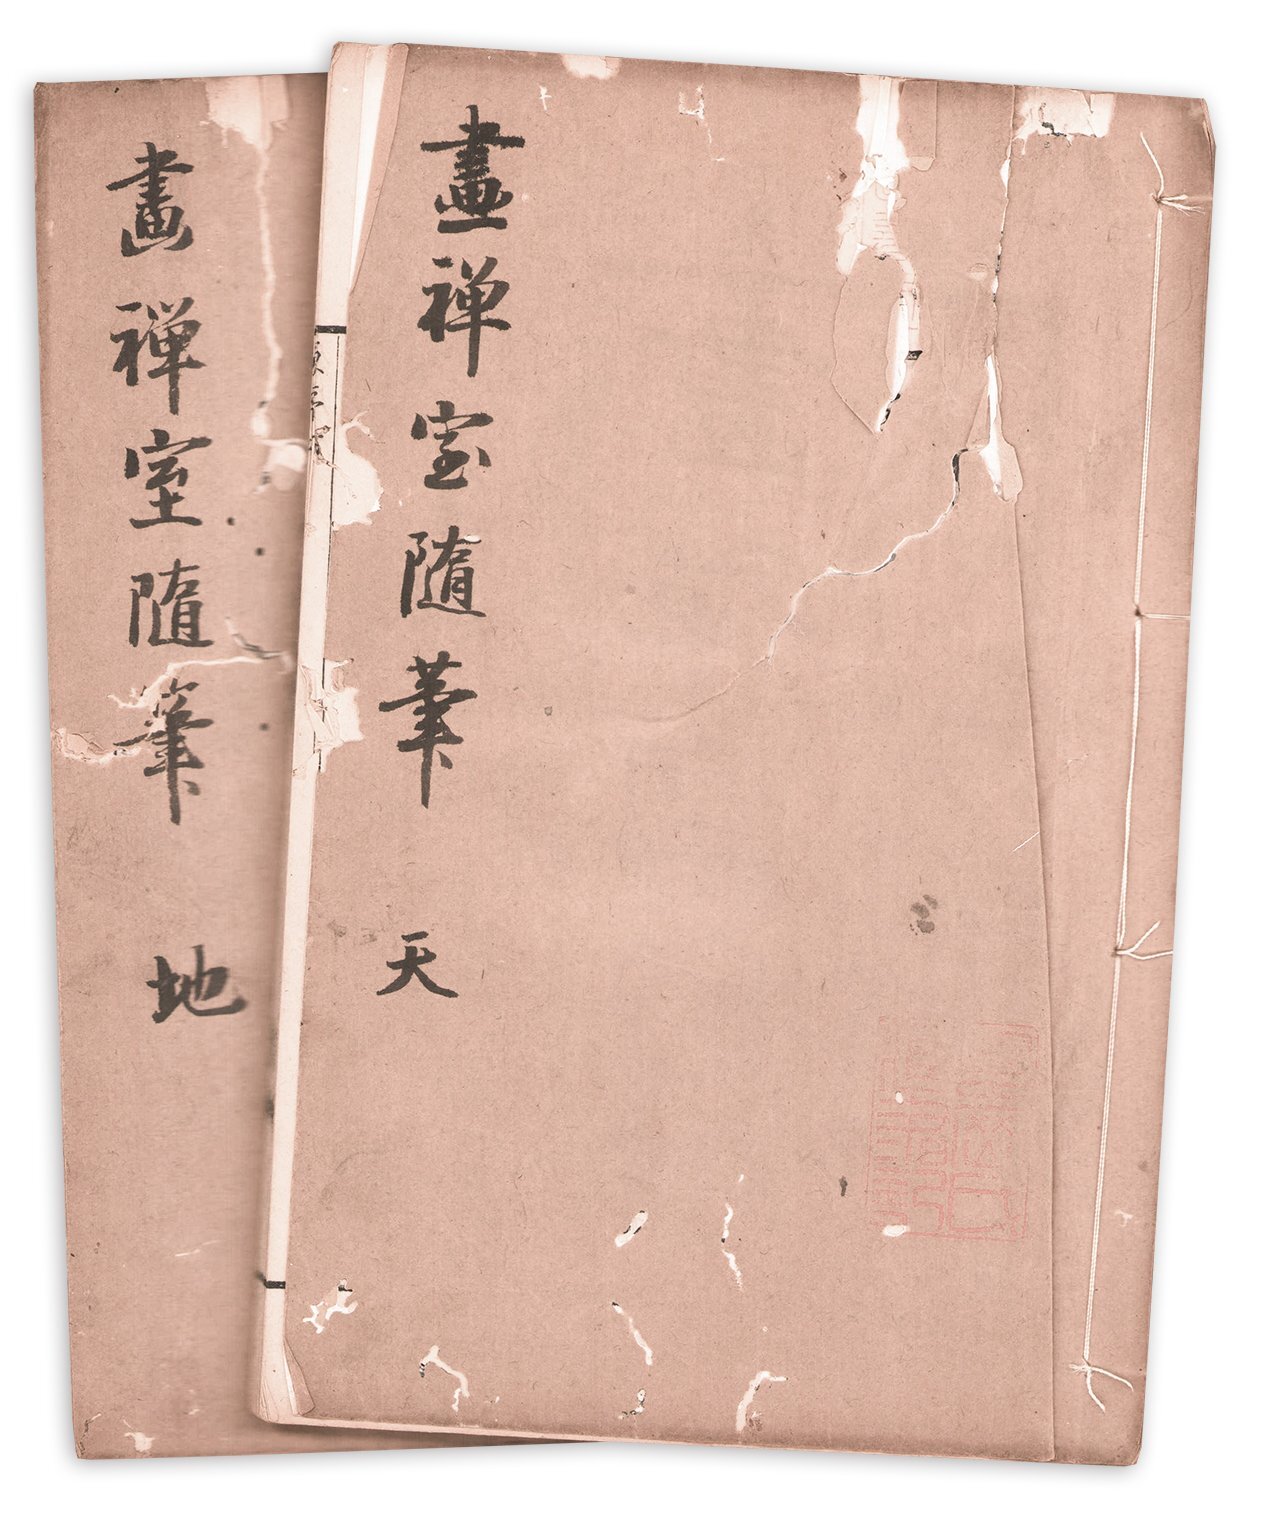 畫禅室隨筆 天
畫禅室隨筆 地